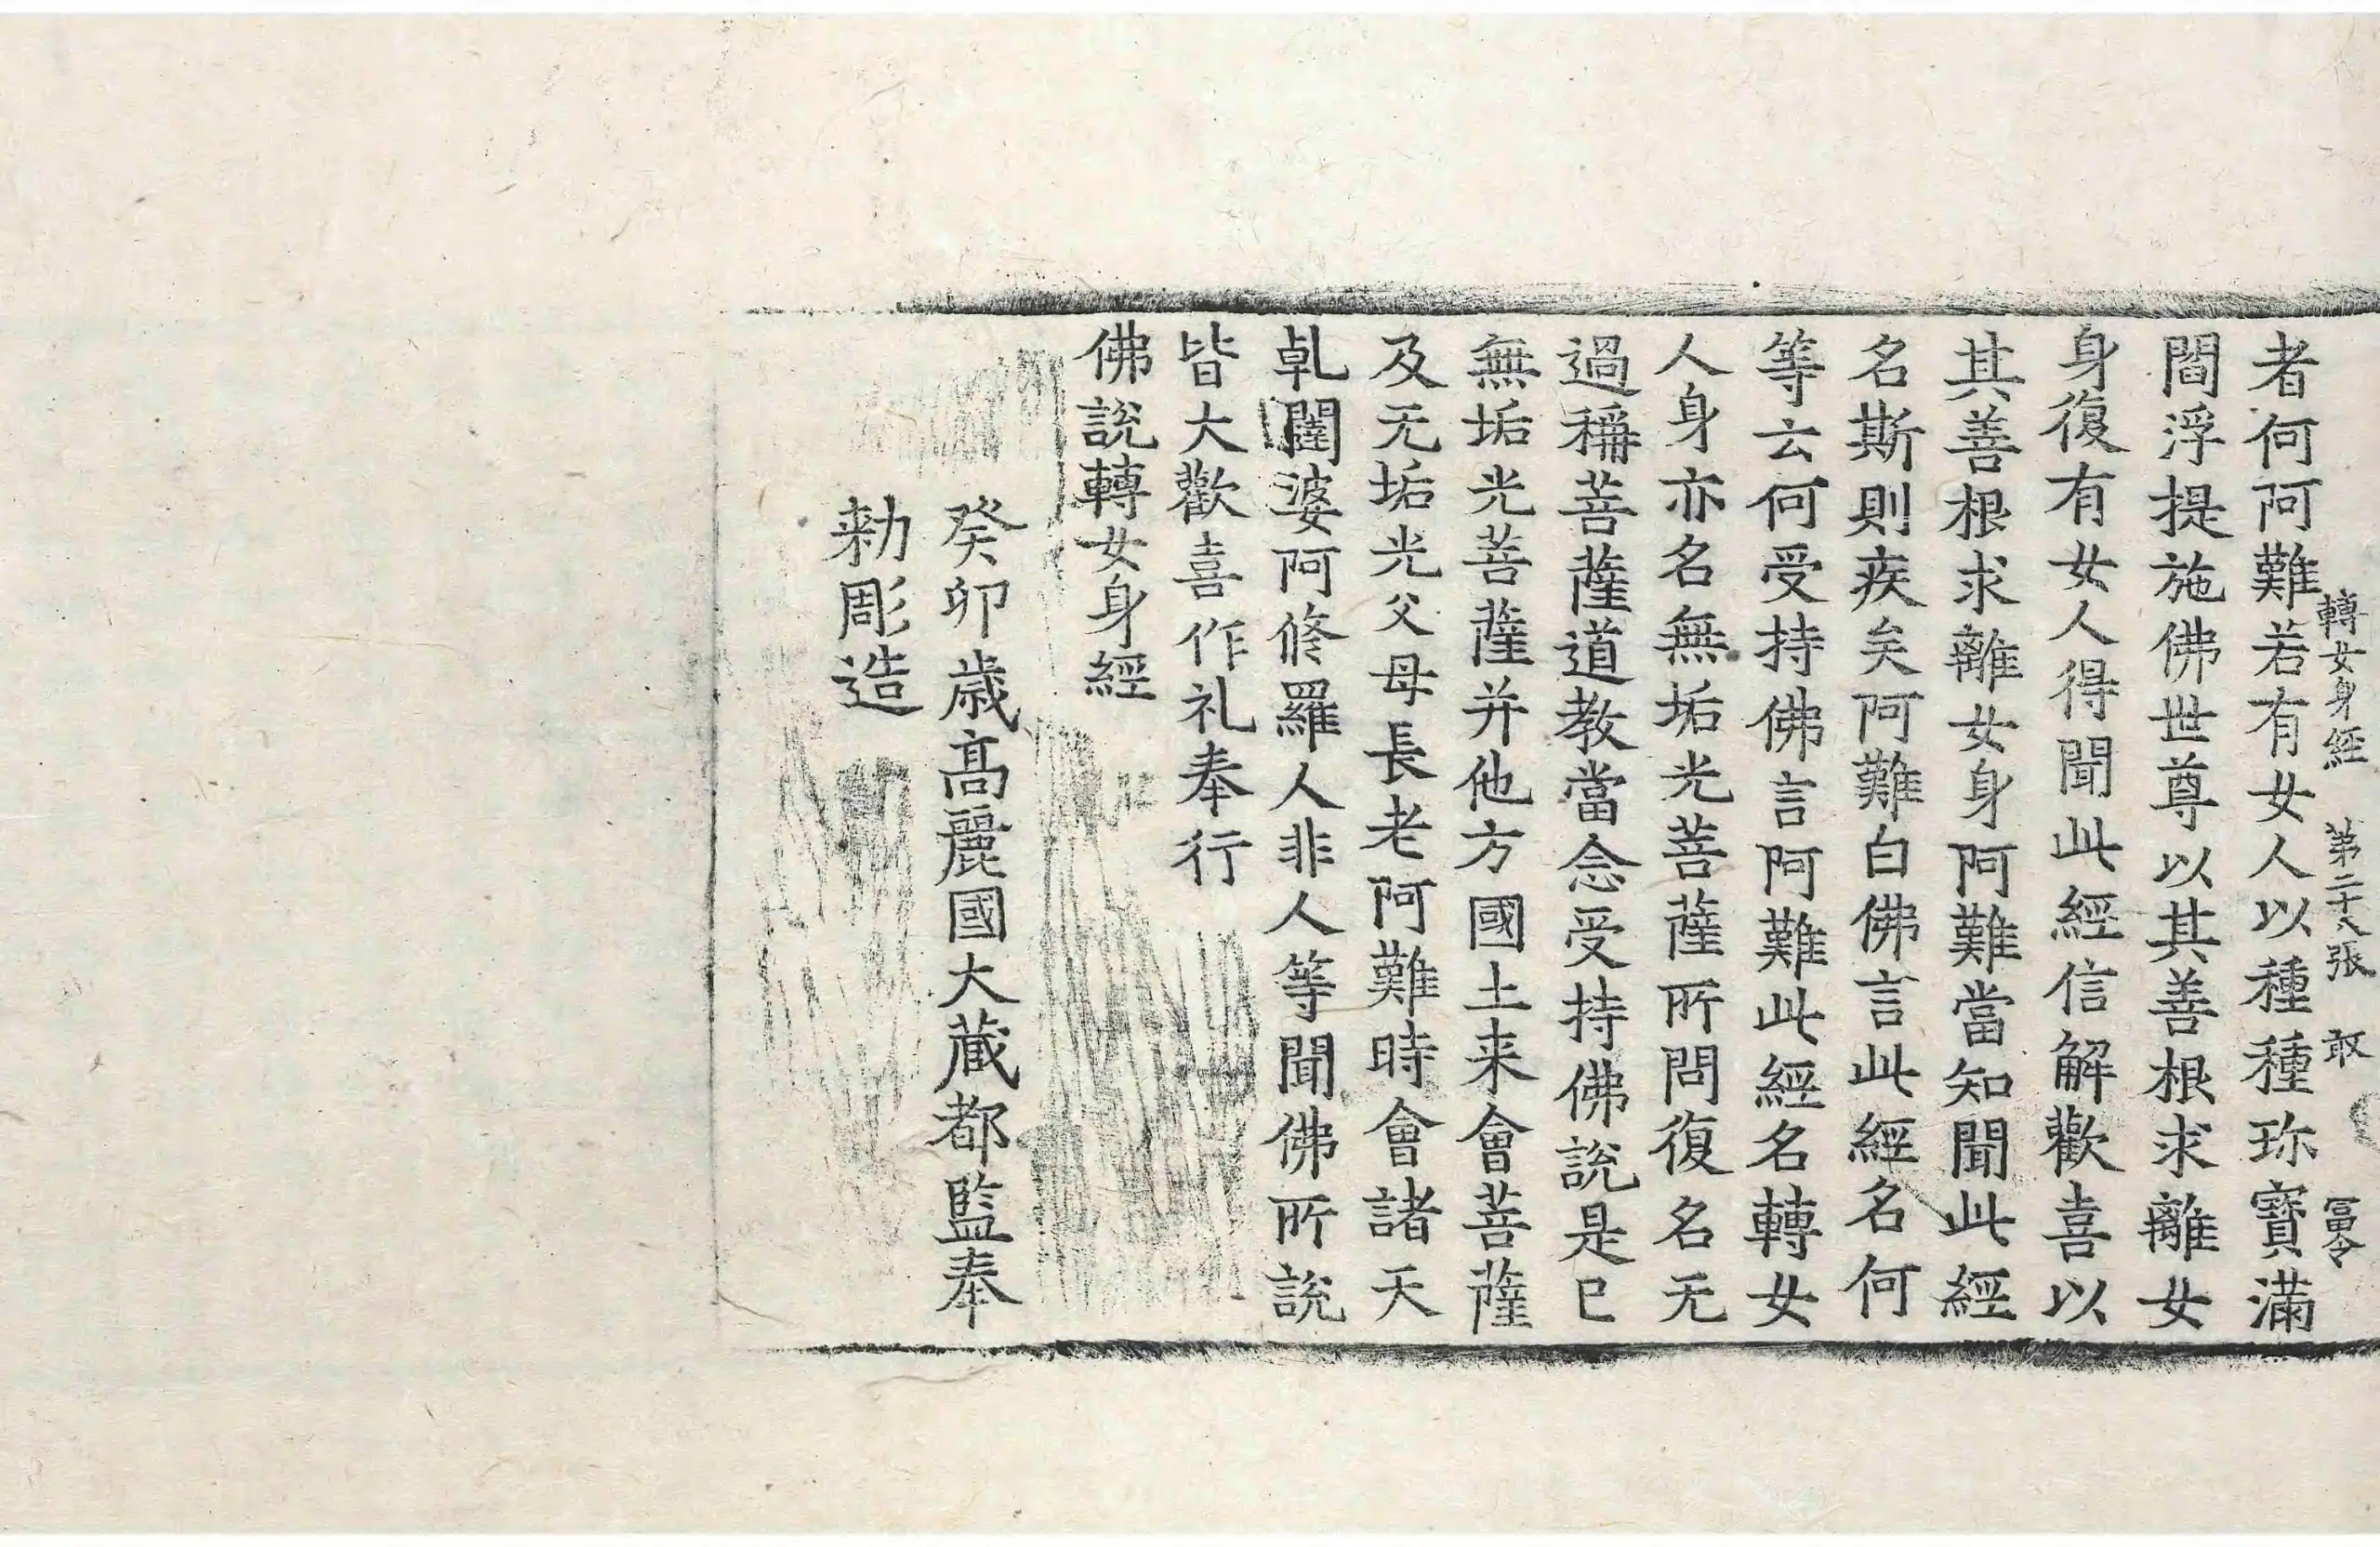 轉女身經 第二十八張 敢 冨令
者何阿難若有女人以種種珎寶滿
閻浮提施佛世尊以其善根求離女
身復有女人得聞此經信解歡喜以
其善根求離女身阿難當知聞此經
名斯則疾矣阿難白佛言此經名何
等云何受持佛言阿難此經名轉女
人身亦名無垢光菩薩所問復名无
過稱菩薩道教當念受持佛說是已
無垢光菩薩并他方國土来會菩薩
及无垢光父母長老阿難時會諸天
乹闥婆阿修羅人非人等聞佛所說
皆大歡喜作礼奉行
佛說轉女身經
癸卯歲高麗國大藏都監奉
勑彫造